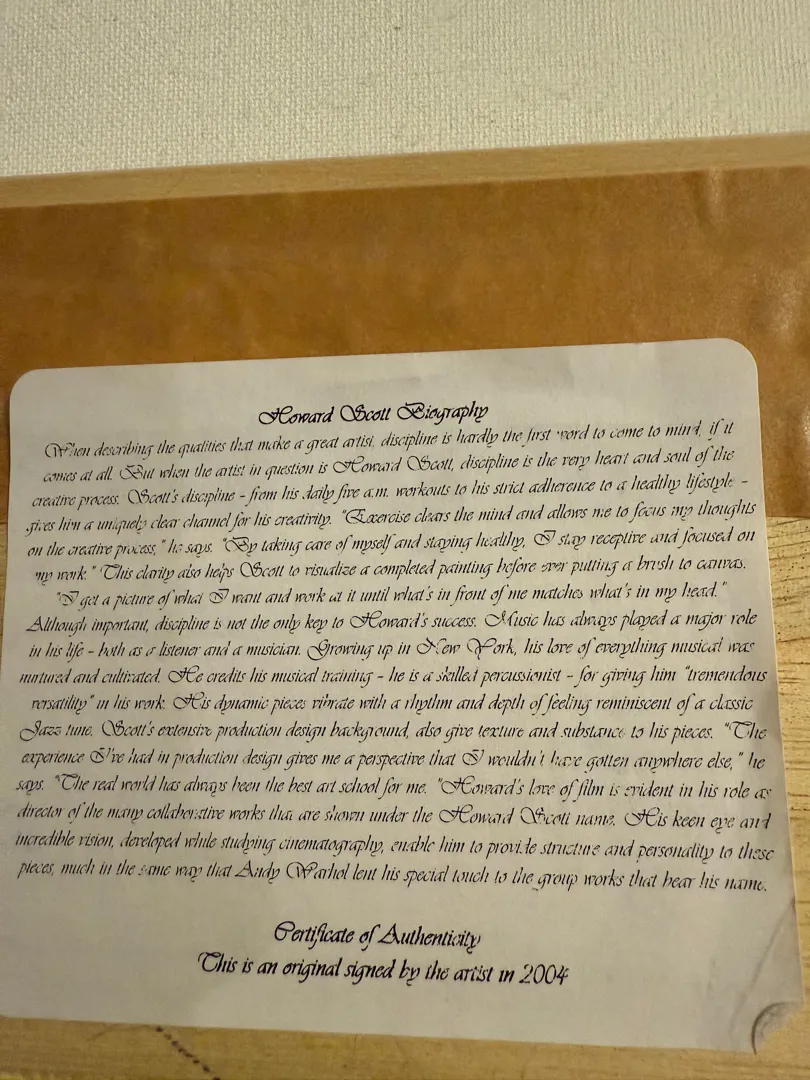 Howard Scott Biography
When describing the qualities that make a great artist, discipline is hardly the first word to come to mind, if it
comes at all. But when the artist in question is Howard Scott, discipline is the very heart and soul of the
creative process. Scott's discipline - from his daily five a.m. workouts to his strict adherence to a healthy lifestyle -
gives him a uniquely clear channel for his creativity. "Exercise clears the mind and allows me to focus my thoughts
on the creative process," he says. "By taking care of myself and staying healthy, I stay receptive and focused on
my work." This clarity also helps Scott to visualize a completed painting before ever putting a brush to canvas.
"I get a picture of what I want and work at it until what's in front of me matches what's in my head."
Although important, discipline is not the only key to Howard's success. Music has always played a major role
in his life - both as a listener and a musician. Growing up in New York, his love of everything musical was
nurtured and cultivated. He credits his musical training - he is a skilled percussionist - for giving him "tremendous
versatility" in his work. His dynamic pieces vibrate with a rhythm and depth of feeling reminiscent of a classic
Jazz tune. Scott's extensive production design background, also give texture and substance to his pieces. "The
experience I've had in production design gives me a perspective that I wouldn't have gotten anywhere else," he
says. "The real world has always been the best art school for me. "Howard's love of film is evident in his role as
director of the many collaborative works that are shown under the Howard Scott name. His keen eye and
incredible vision, developed while studying cinematography, enable him to provide structure and personality to these
pieces, much in the same way that Andy Warhol lent his special touch to the group works that bear his name.
Certificate of Authenticity
This is an original signed by the artist in 2004